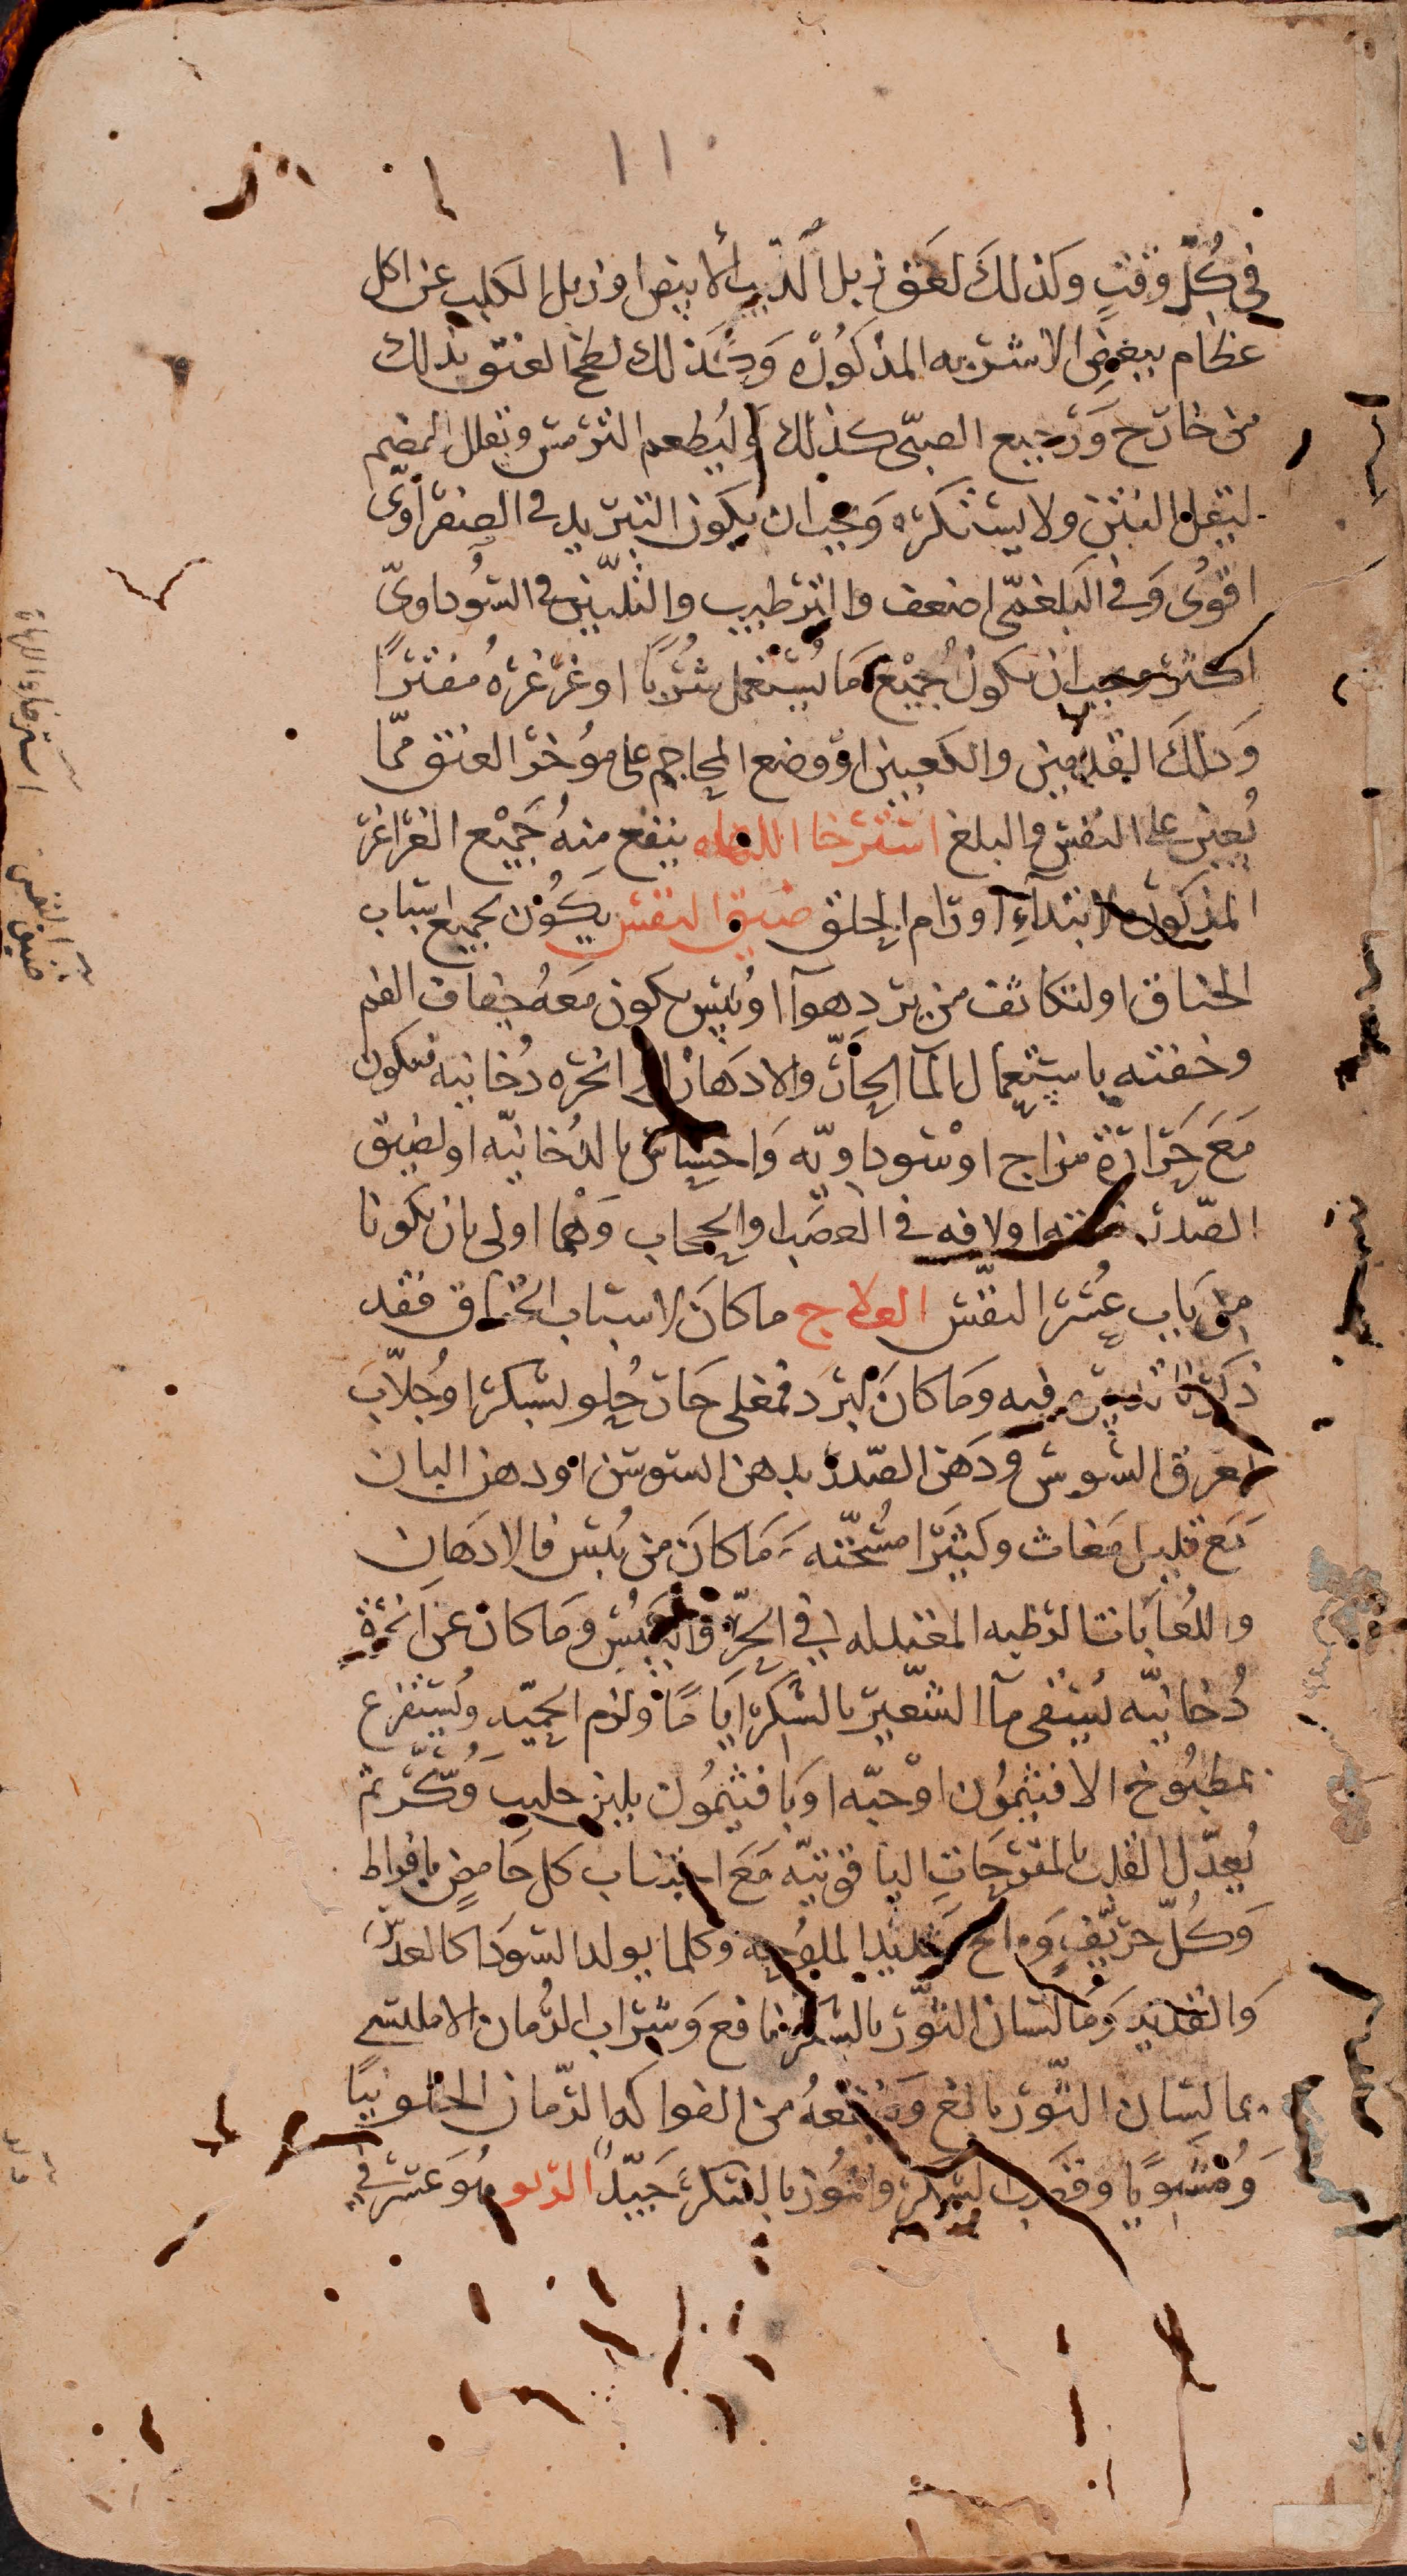 ١١٠
في كُلّ وقتٍ وكذلكَ لعَق زبل الذيب الأبيض او زبل الكلب عن اكل
عظام ببعض الاشربه المذكوره وَكَذلك لطخ العنق بذلك
من خارج وَرجيع الصبّى كذلك وليُطعم الترمس وتقلل الهضم
ليقل النتن ولا يستنكره وَيجب ان يكون التبريد فى الصفراوىّ
اقوى وَفى البَلغمّى اضعف والترطيب والتلّيين فى السُوداوىّ
اكثر ويجب ان يكون جُميْع مَا يُستعمل شُربًا او غرغره مُفترًا
وَدَلكَ القدمين والكعبين او وضع المحاجم على مؤُخر العنق ممّا
يُعين على النفس والبلع استرخا اللهاه ينفع منهُ جَميْع الغراغر
المذكوره لابتدآءِ اورام الحلق ضيق النفس يكُون لجميع اسباب
الخناق او لتكاثف من برد هوآ او يُبس يكون مَعهُ جفاف الفم
وخفته باستعمال المآ الحَارّ والادهان او لابخره دُخانيه فيكون
مَعَ حَرَارَة مزاج اوْ سوداويّه وَاحسِاس بالدُخانيّه او لضيق
الصّدر خلقه او لافه فى العصَب او الحجاب وَهُما اولى بان يكونا
من بَاب عُسر النفّس العلاج ما كانَ لاسباب الخناق فقد
ذكرنا فيه وَما كانَ لبَرد فمغلى حَار حُلو بسكر او جُلاّب
بعرق السوس ودَهن الصّدر بدهن السوسن او دهن البان
مَع قليل مَغاث وكثيَرا مسُخّنه وَمَا كانَ من يُبس فالادَهان
واللُعَابَات الرطبه المغسله فى الحرّ واليُبس وَما كان عن ابخرة
دُخانيّه يُسقى مآ الشّعير بالسُكر ايَامًا ولزم الحميّه ويُستفرغ
بمطبُوخ الافتيمُون اوْحبّه او بَافتيمُون بلبن حليب وَسُكّر ثم
يُعدّل القلب بالمفرحَاتِ الياقوتيّه مَعَ اجتناب كل حَامضٍ بافراط
وَكُلّ حرّيفٍ وَمالح شديد الملوُحه وكلما يولد السّودَا كالعدَس
وَالقديد وَمَا لسَان الثوّر بالسكر نافع وَشراب الرُمان الامليسى
بما لسان الثوّر بالغ وَينفعهُ من الفواكه الرّمان الحلو نيًا
وَمُشويًا وقصَب السُكر والمُوز بالسُكر جَيّدٌ الربو هُوَ عسر فى
استرخاء اللهاة
ضيق النفس